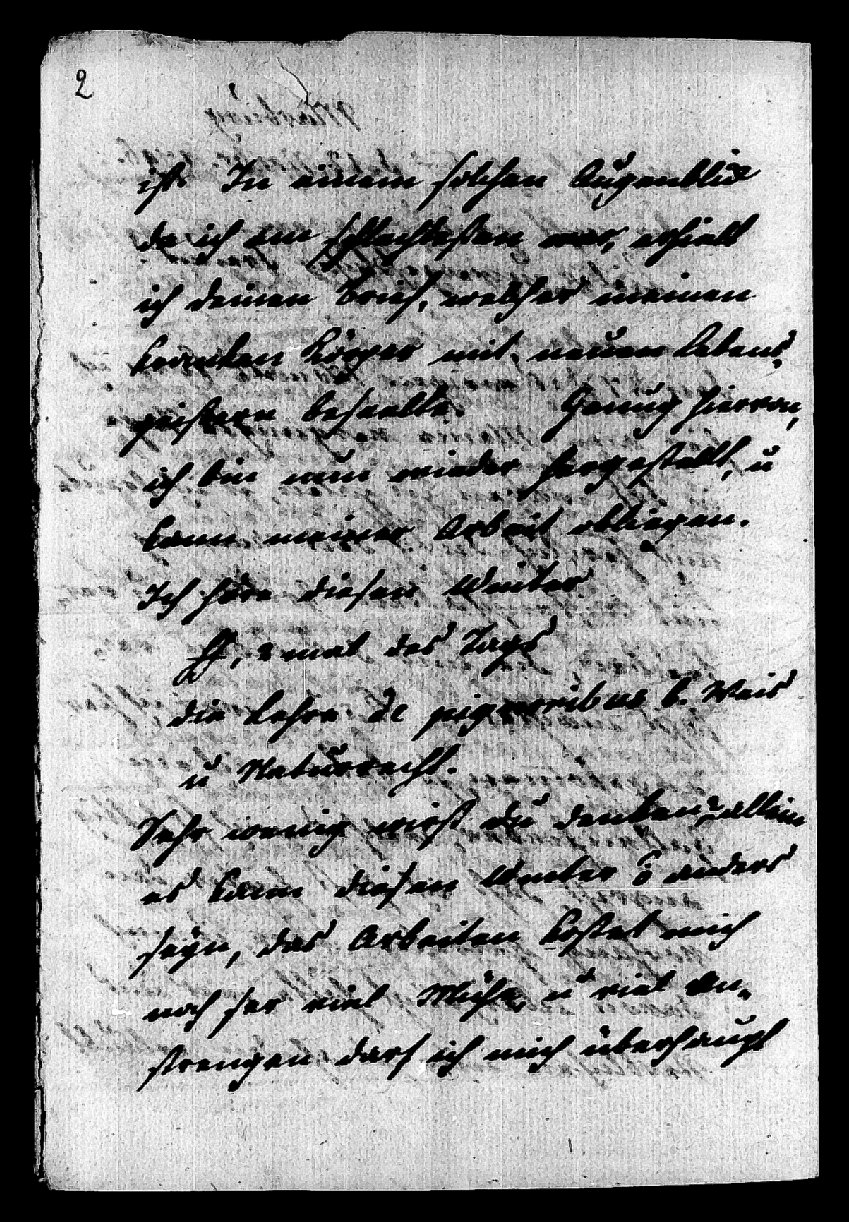 2
ist. In einem solchen Augenblick
da ich am schlechtesten war, erhielt
ich deinen Brief, welcher meinen
kranken Körper mit neuen Lebens-
geistern beseelte. Genug hiervon,
ich bin nun wieder hergestellt, u
kann meiner Arbeit obliegen.
Ich höre diesen Winter
ff, 2 mal des Tags
die Lehre de pignoribus b. Weis
u Naturrecht.
Sehr wenig wirst du denken, allein
es kann diesen Winter anders
seyn, das Arbeiten kostet mich
noch ser viel Mühe, u viel an-
strengen darf ich mich überhaupt